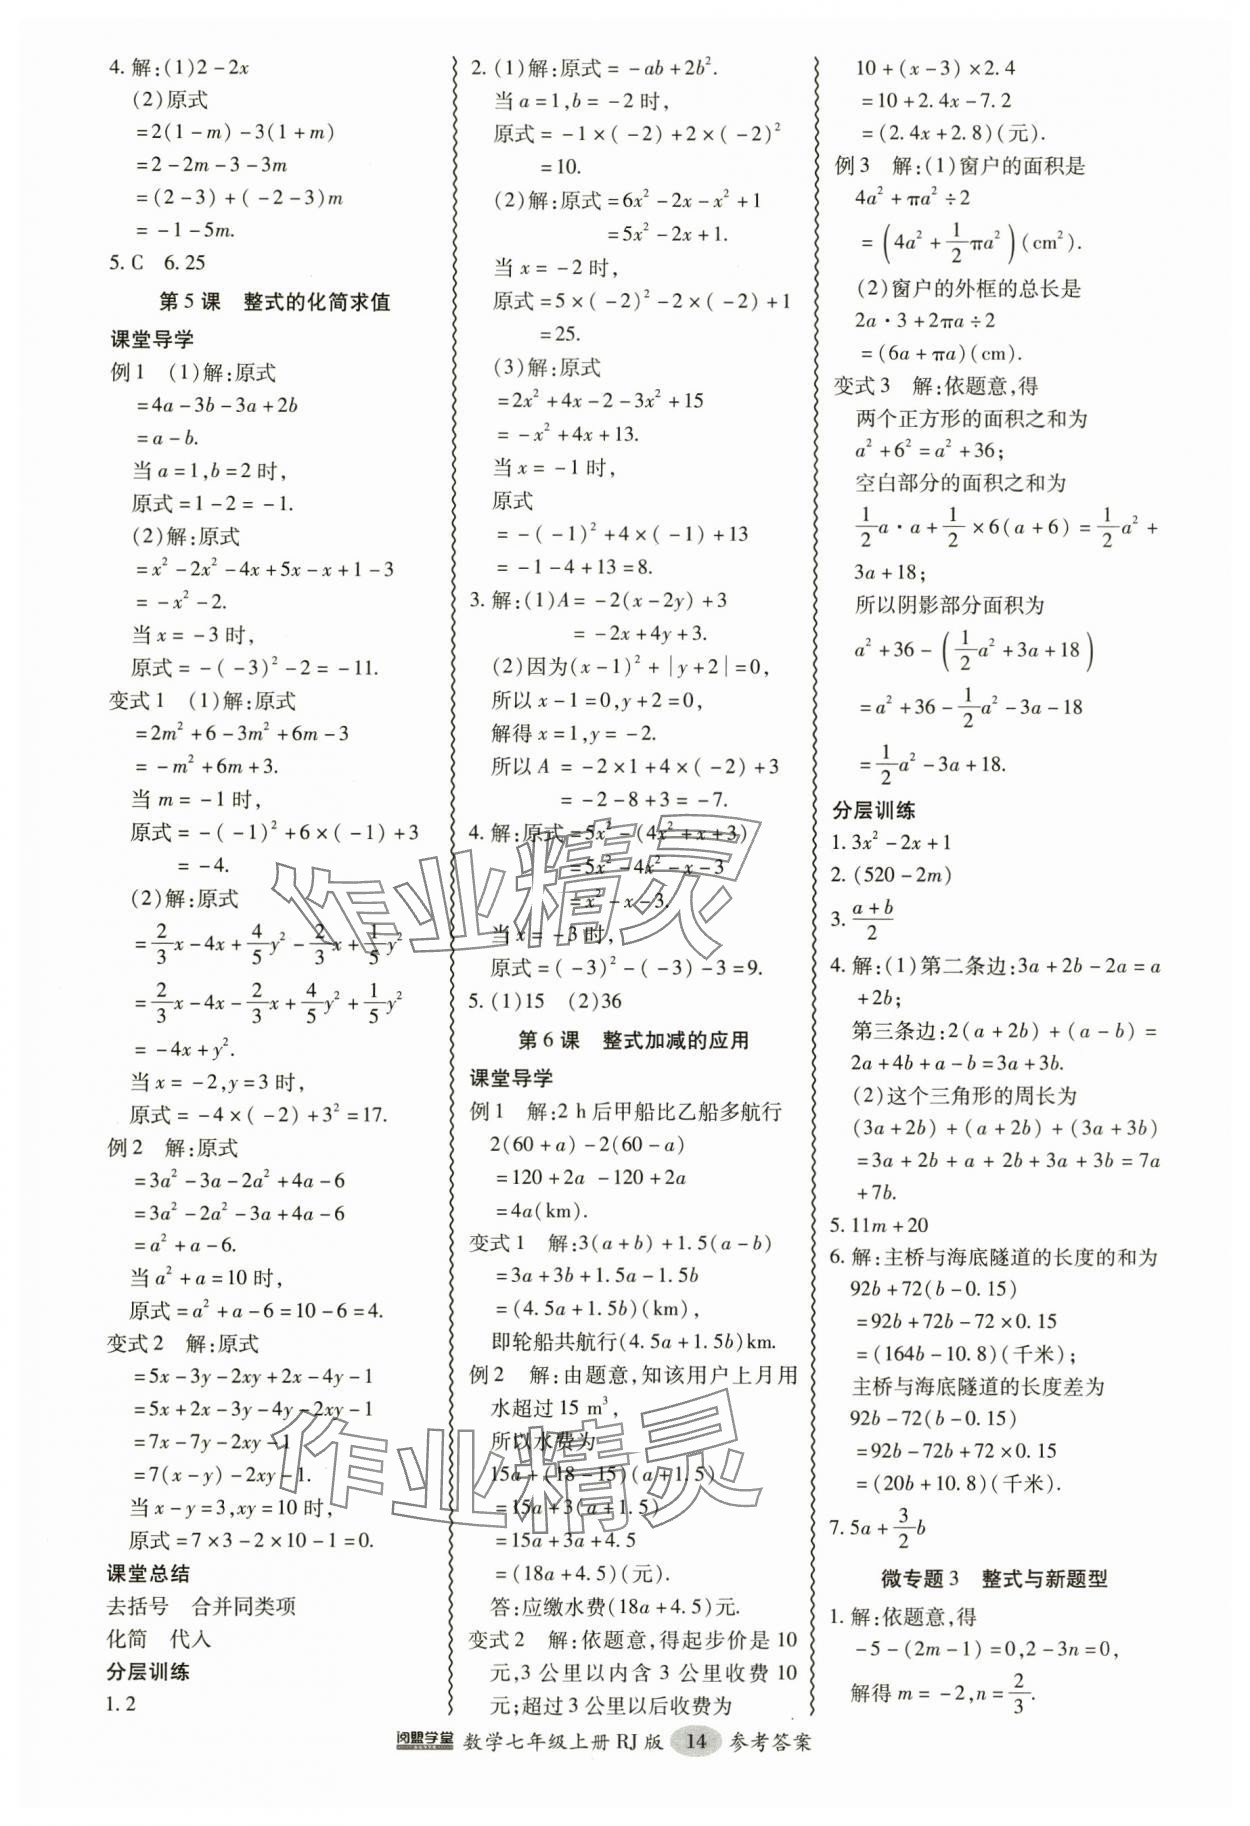 4. 解:(1)2-2x
(2)原式
=2(1-m)-3(1+m)
=2-2m-3-3m
=(2-3)+(-2-3)m
=-1-5m.
5. C 6. 25
第 5 课 整式的化简求值
课堂导学
例1 (1)解:原式
=4a-3b-3a+2b
=a-b.
当 a=1,b=2 时,
原式=1-2=-1.
(2)解:原式
=x²-2x²-4x+5x-x+1-3
=-x²-2.
当 x=-3 时,
原式=-(-3)²-2=-11.
变式 1 (1)解:原式
=2m²+6-3m²+6m-3
=-m²+6m+3.
当 m=-1 时,
原式=-(-1)²+6×(-1)+3
=-4.
(2)解:原式
=2/3x-4x+4/5y²-2/3x+1/5y²
=2/3x-4x-2/3x+4/5y²+1/5y²
=-4x+y².
当 x=-2,y=3 时,
原式=-4×(-2)+3²=17.
例2 解:原式
=3a²-3a-2a²+4a-6
=3a²-2a²-3a+4a-6
=a²+a-6.
当 a²+a=10 时,
原式=a²+a-6=10-6=4.
变式 2 解:原式
=5x-3y-2xy+2x-4y-1
=5x+2x-3y-4y-2xy-1
=7x-7y-2xy-1
=7(x-y)-2xy-1.
当 x-y=3,xy=10 时,
原式=7×3-2×10-1=0.
课堂总结
去括号 合并同类项
化简 代入
分层训练
1. 2
2. (1)解:原式=-ab+2b².
当 a=1,b=-2 时,
原式=-1×(-2)+2×(-2)²
=10.
(2)解:原式=6x²-2x-x²+1
=5x²-2x+1.
当 x=-2 时,
原式=5×(-2)²-2×(-2)+1
=25.
(3)解:原式
=2x²+4x-2-3x²+15
=-x²+4x+13.
当 x=-1 时,
原式
=-(-1)²+4×(-1)+13
=-1-4+13=8.
3. 解:(1)A=-2(x-2y)+3
=-2x+4y+3.
(2)因为(x-1)²+|y+2|=0,
所以 x-1=0,y+2=0,
解得 x=1,y=-2.
所以 A =-2×1+4×(-2)+3
=-2-8+3=-7.
4. 解:原式=5x²-(4x²+x+3)
=5x²-4x²-x-3
=x²-x-3.
当 x=-3 时,
原式=(-3)²-(-3)-3=9.
5. (1)15 (2)36
第 6 课 整式加减的应用
课堂导学
例1 解:2 h 后甲船比乙船多航行
2(60+a)-2(60-a)
=120+2a-120+2a
=4a(km).
变式 1 解:3(a+b)+1.5(a-b)
=3a+3b+1.5a-1.5b
=(4.5a+1.5b)(km),
即轮船共航行(4.5a+1.5b)km.
例2 解:由题意,知该用户上月用
水超过 15 m³,
所以水费为
15a+(18-15)(a+1.5)
=15a+3(a+1.5)
=15a+3a+4.5
=(18a+4.5)(元).
答:应缴水费(18a+4.5)元.
变式 2 解:依题意,得起步价是 10
元,3 公里以内含 3 公里收费 10
元;超过 3 公里以后收费为
10+(x-3)×2.4
=10+2.4x-7.2
=(2.4x+2.8)(元).
例3 解:(1)窗户的面积是
4a²+πa²÷2
=(4a²+1/2πa²)(cm²).
(2)窗户的外框的总长是
2a·3+2πa÷2
=(6a+πa)(cm).
变式 3 解:依题意,得
两个正方形的面积之和为
a²+6²=a²+36;
空白部分的面积之和为
1/2a·a+1/2×6(a+6)=1/2a²+
3a+18;
所以阴影部分面积为
a²+36-(1/2a²+3a+18)
=a²+36-1/2a²-3a-18
=1/2a²-3a+18.
分层训练
1. 3x²-2x+1
2. (520-2m)
3. (a+b)/2
4. 解:(1)第二条边:3a+2b-2a=a
+2b;
第三条边:2(a+2b)+(a-b)=
2a+4b+a-b=3a+3b.
(2)这个三角形的周长为
(3a+2b)+(a+2b)+(3a+3b)
=3a+2b+a+2b+3a+3b=7a
+7b.
5. 11m+20
6. 解:主桥与海底隧道的长度的和为
92b+72(b-0.15)
=92b+72b-72×0.15
=(164b-10.8)(千米);
主桥与海底隧道的长度差为
92b-72(b-0.15)
=92b-72b+72×0.15
=(20b+10.8)(千米).
7. 5a+3/2b
微专题 3 整式与新题型
1. 解:依题意,得
-5-(2m-1)=0,2-3n=0,
解得 m=-2,n=2/3.
阅盟学堂 数学七年级上册 RJ 版 14 参考答案
作业精灵
作业精灵